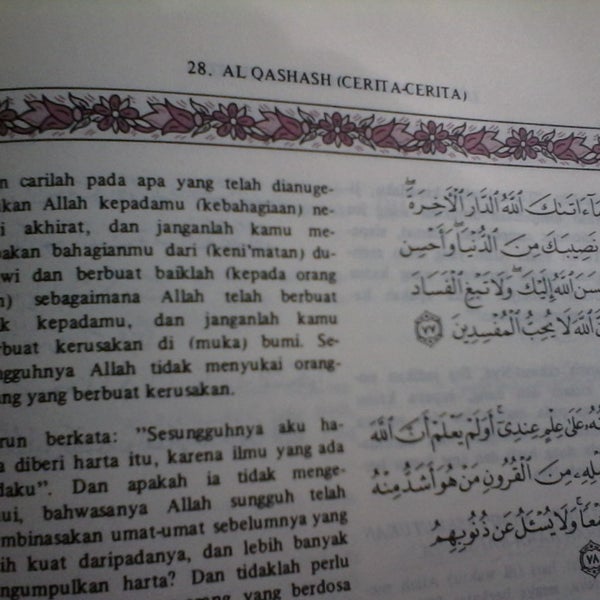 28. AL QASHASH (CERITA-CERITA)
n carilah pada apa yang telah dianuge-
kan Allah kepadamu (kebahagiaan) ne-
i akhirat, dan janganlah kamu me-
pakan bahagianmu dari (keni'matan) du-
wi dan berbuat baiklah (kepada orang
n) sebagaimana Allah telah berbuat
k kepadamu, dan janganlah kamu
rbuat kerusakan di (muka) bumi. Se-
ngguhnya Allah tidak menyukai orang-
ng yang berbuat kerusakan.
run berkata: "Sesungguhnya aku ha-
a diberi harta itu, karena ilmu yang ada
daku". Dan apakah ia tidak menge-
ui, bahwasanya Allah sungguh telah
mbinasakan umat-umat sebelumnya yang
ih kuat daripadanya, dan lebih banyak
ngumpulkan harta? Dan tidaklah perlu
yang berdosa
ءَاتَىٰكَ ٱللَّهُ ٱلدَّارَ ٱلْأَخِرَةَ ۖ
نَصِيبَكَ مِنَ ٱلدُّنْيَا ۖ وَأَحْسِن
سَنَ ٱللَّهُ إِلَيْكَ ۖ وَلَا تَبْغِ ٱلْفَسَادَ
ٱللَّهَ لَا يُحِبُّ ٱلْمُفْسِدِينَ ٧٧
عَلَىٰ عِلْمٍ عِندِىٓ ۚ أَوَلَمْ يَعْلَمْ أَنَّ ٱللَّهَ
مِنَ ٱلْقُرُونِ مَنْ هُوَ أَشَدُّ مِنْهُ
وَلَا يُسْـَٔلُ عَن ذُنُوبِهِمُ
٧٨